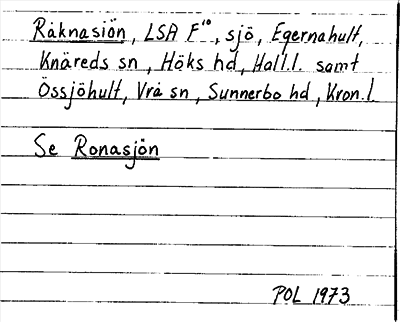 Råknasiön, LSA F¹⁰, sjö, Egernahult,
Knäreds sn, Höks hd, Hall.l. samt
Össjöhult, Vrå sn, Sunnerbo hd, Kron.l.
Se Ronasjön
POL 1973